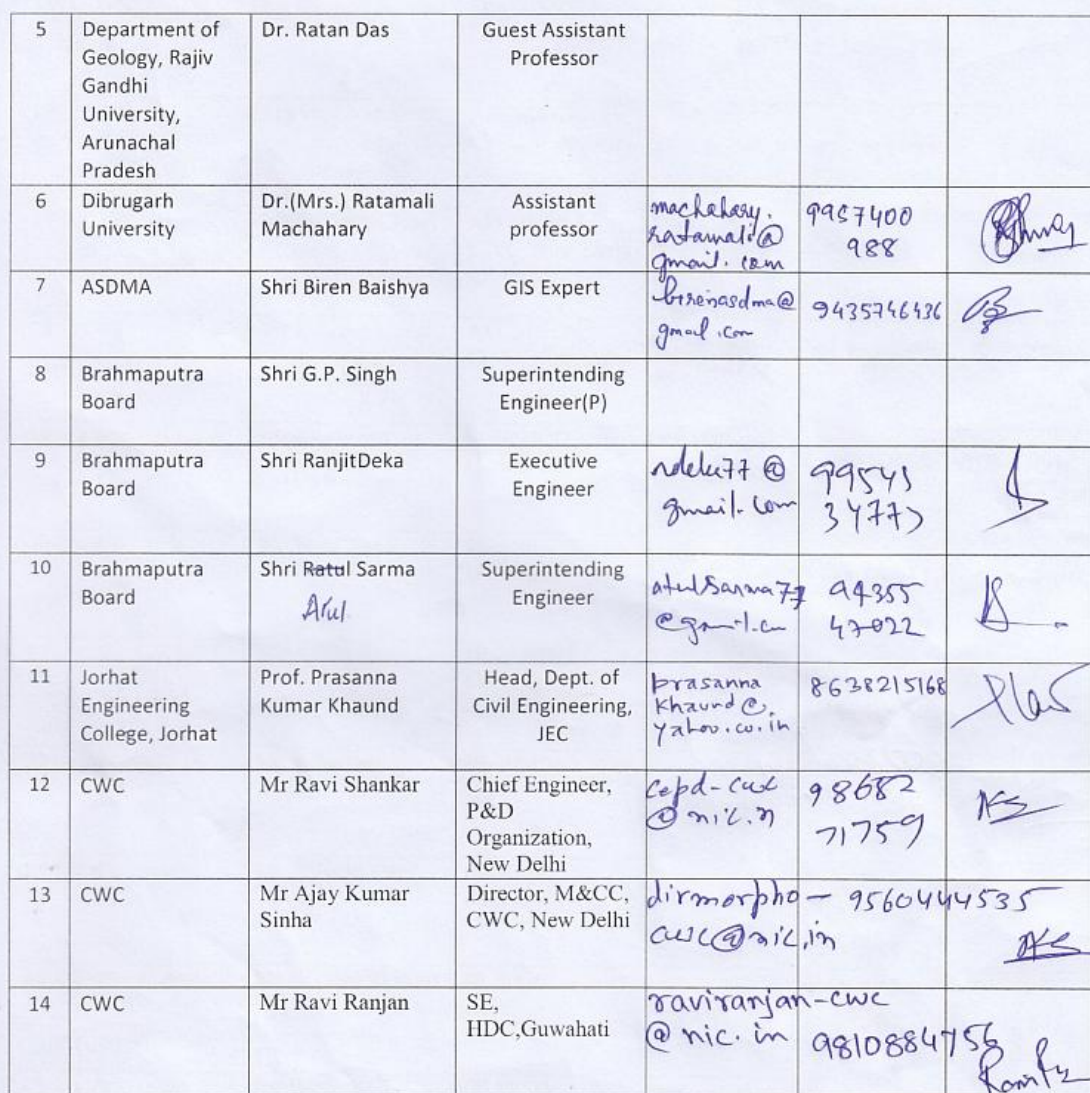 5
Department of
Geology, Rajiv
Gandhi
University,
Arunachal
Pradesh
Dr. Ratan Das
Guest Assistant
Professor
6
Dibrugarh
University
Dr.(Mrs.) Ratamali
Machahary
Assistant
professor
machahary.
ratamali@
gmail.com
9957400
988
7
ASDMA
Shri Biren Baishya
GIS Expert
birenasdma@
gmail.com
9435746436
8
Brahmaputra
Board
Shri G.P. Singh
Superintending
Engineer(P)
9
Brahmaputra
Board
Shri RanjitDeka
Executive
Engineer
@
gmail.com
10
Brahmaputra
Board
Shri Ratul Sarma
Atul
Superintending
Engineer
atulsarma77
94355
47022
11
Jorhat
Engineering
College, Jorhat
Prof. Prasanna
Kumar Khaund
Head, Dept. of
Civil Engineering,
JEC
prasanna
khaund@
yahoo.co.in
8638215168
12
CWC
Mr Ravi Shankar
Chief Engineer,
P&D
Organization,
New Delhi
cepd-cwc
98682
71759
13
CWC
Mr Ajay Kumar
Sinha
Director, M&CC,
CWC, New Delhi
dirmorpho-
cwc@nic.in
9560444535
14
CWC
Mr Ravi Ranjan
SE,
HDC,Guwahati
raviranjan-cwc
@nic.in
9810884756